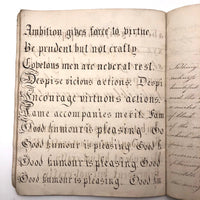 Ambition gives force to virtue.
Be prudent but not crafty
Covetous men are never at rest.
Despise vicious actions. Despi
Encourage virtuous actions.
Fame accompanies merit. Fam
Good humour is pleasing. Good
Good humour is pleasing. Good
Good humour is pleasing. Good Good
Good humour is pleasing. Good